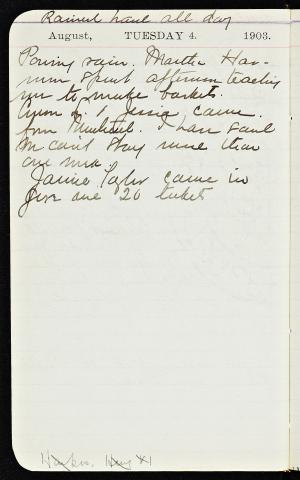 Rained hard all day
August, TUESDAY 4. 1903.
Pouring rain. Martha Har-
mon spent afternoon teaching
me to make baskets.
& Jessie came
from I have said
can't stay more than
one week.
Jannie Taylor came in
give me 20 tickets